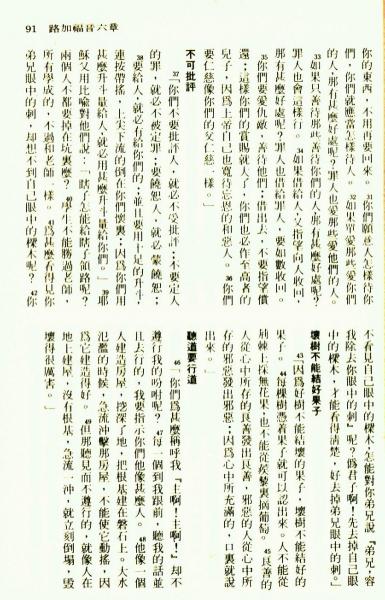 91 路加福音六章
你的東西，不用再要回來。31你們願意人怎樣待你
們，你們就應當怎樣待人。32如果單愛那些愛你們
的人，那有甚麼好處呢？罪人也愛那些愛他們的人。
33如果只善待那些善待你們的人，那有甚麼好處？
罪人也會這樣行。34如果借給人，又指望向人收回，
那有甚麼好處呢？罪人也借給罪人，要如數收回。
35你們要愛仇敵，善待他們；借出去，不要指望償
還；這樣你們的賞賜就大了，你們也必作至高者的
兒子，因爲上帝自己也寬待忘恩的和惡人。36你們
要仁慈像你們的父仁慈一樣。」
不可批評
37「你們不要批評人，就必不受批評；不要定人
的罪，就必不被定罪；要饒恕人，就必蒙饒恕；
38要給人，就必有給你們的；並且要用十足的升斗，
連按帶搖，上尖下流的倒在你們懷裏；因爲你們用
甚麼升斗量給人，就必用甚麼升斗量給你們。」39耶
穌又用比喻對他們說：「瞎子怎能給瞎子領路呢？
兩個人不都要掉在坑裏麼？40學生不能勝過老師，
所有學成的，不過和老師一樣。41爲甚麼看得見你
弟兄眼中的刺，却想不到自己眼中的樑木呢？42你
不看見自己眼中的樑木，怎能對你弟兄說『弟兄，容
我除去你眼中的刺』呢？僞君子啊！先去掉自己眼
中的樑木，才能看得清楚，好去掉弟兄眼中的刺。」
壞樹不能結好果子
43「因爲好樹不能結壞的果子，壞樹不能結好的
果子。44每棵樹憑着果子就可以認出來。人不能從
荊棘上採無花果，也不能從蒺藜裏摘葡萄。45良善的
人從心中所存的良善發出良善，邪惡的人從心中所
存的邪惡發出邪惡；因爲心中所充滿的，口裏就說
出來。」
聽道要行道
46「你們爲甚麼稱呼我『主啊！主啊！』却不
遵行我的吩咐呢？47每一個到我跟前，聽我的話並
且去行的，我要指示你們他像甚麼人。48他像一個
人建造房屋，挖深了地，把根基建在磐石上。大水
氾濫的時候，急流沖擊那房屋，不能使它動搖，因
爲它建造得好。49但那聽見而不遵行的，就像人在
地上建屋，沒有根基，急流一沖，就立刻倒塌，毀
壞得很厲害。」